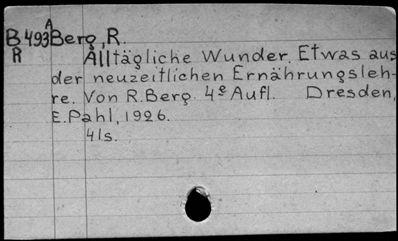 A
B 493 Berg, R.
R Alltägliche Wunder. Etwas aus
der neuzeitlichen Ernährungsleh-
re. Von R. Berg. 4e Aufl. Dresden,
E. Pahl, 1926.
41s.